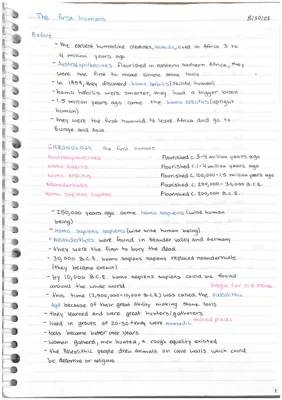 The first humans
8/30/23
Before
- the earliest humanlike creatures, hominids, lived in Africa 3 to
4 million years ago
- Australopithecines flourished in eastern southern Africa, they
were the first to make simple stone tools
- in 1959, they discovered homo habilis (skillful human)
- homo habilis were smarter, they had a bigger brain
- 1.5 million years ago came the homo erectus (upright
human)
- they were the first hominid to leave Africa and go to
Europe and Asia
CHRONOLOGY the first humans
Australopithecines flourished c. 3-4 million years ago
homo habilis flourished c. 1-4 million years ago
homo erectus flourished c. 100,000-1.5 million years ago
Neanderthals flourished c. 200,000-30,000 B.C.E.
homo sapiens sapiens flourished c. 200,000 B.C.E.
- 250,000 years ago came homo sapiens (wise human
being)
- homo sapiens sapiens (wise wise human being)
- Neanderthals were found in Neander valley and Germany
- they were the first to bury the dead
- 30,000 B.C.E. homo sapiens sapiens replaced neanderthals
(they became extinct)
- by 10,000 B.C.E. homo sapiens sapiens could be found
around the whole world
- this time (2,500,000-10,000 B.C.E.) was called the paleolithic
age because of their great ability making stone tools
- they learned and were great hunters/gatherers
- lived in groups of 20-30 & they were nomadic
moved places
- tools became better over years
- women gathered, men hunted, & rough equality existed
- the paleolithic people drew animals on cave walls which could
be decorative or religious